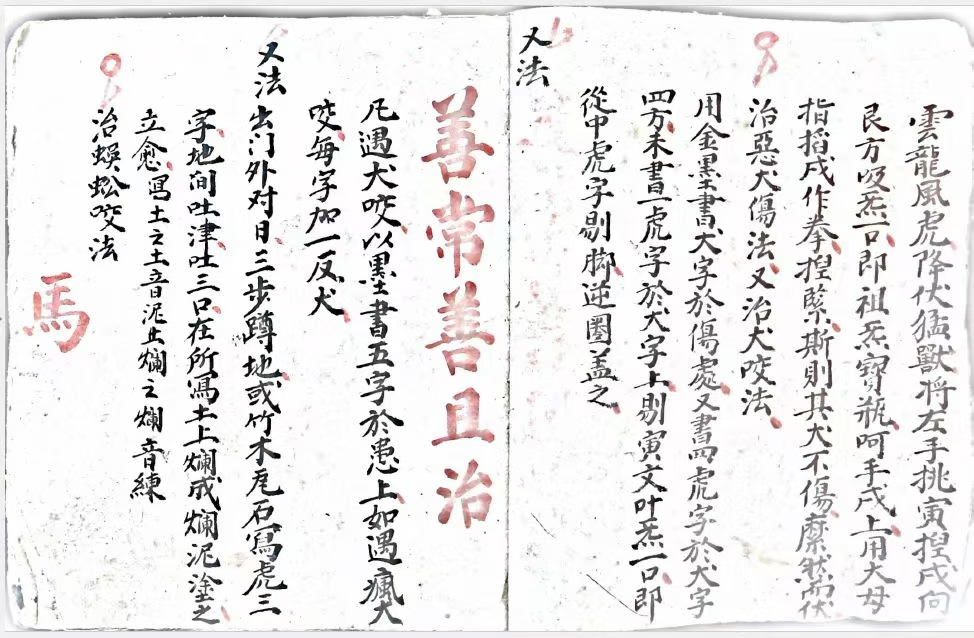 雲龍風虎降伏猛獸將左手挑寅揑戌向
艮方吸炁一口即祖炁寶瓶呵手戌上用大母
指搯戌作拳揑緊斯則其犬不傷縻然而伏
治惡犬傷法又治犬咬法
用金墨書犬字於傷處又書四虎字於犬字
四方未書一虎字於犬字上剔寅文叶炁一口即
從中虎字剔脚逆圈盖之
又法
善常善且治
凡遇犬咬以墨書五字於患上如遇瘋犬
咬每字加一反犬
又法出门外对日三步蹲地或竹木瓦石寫虎三
字地间吐津吐三口在所寫土上爛成爛泥塗之
立愈寫土之土音泥土爛之爛音練
治蜈蚣咬法
馬